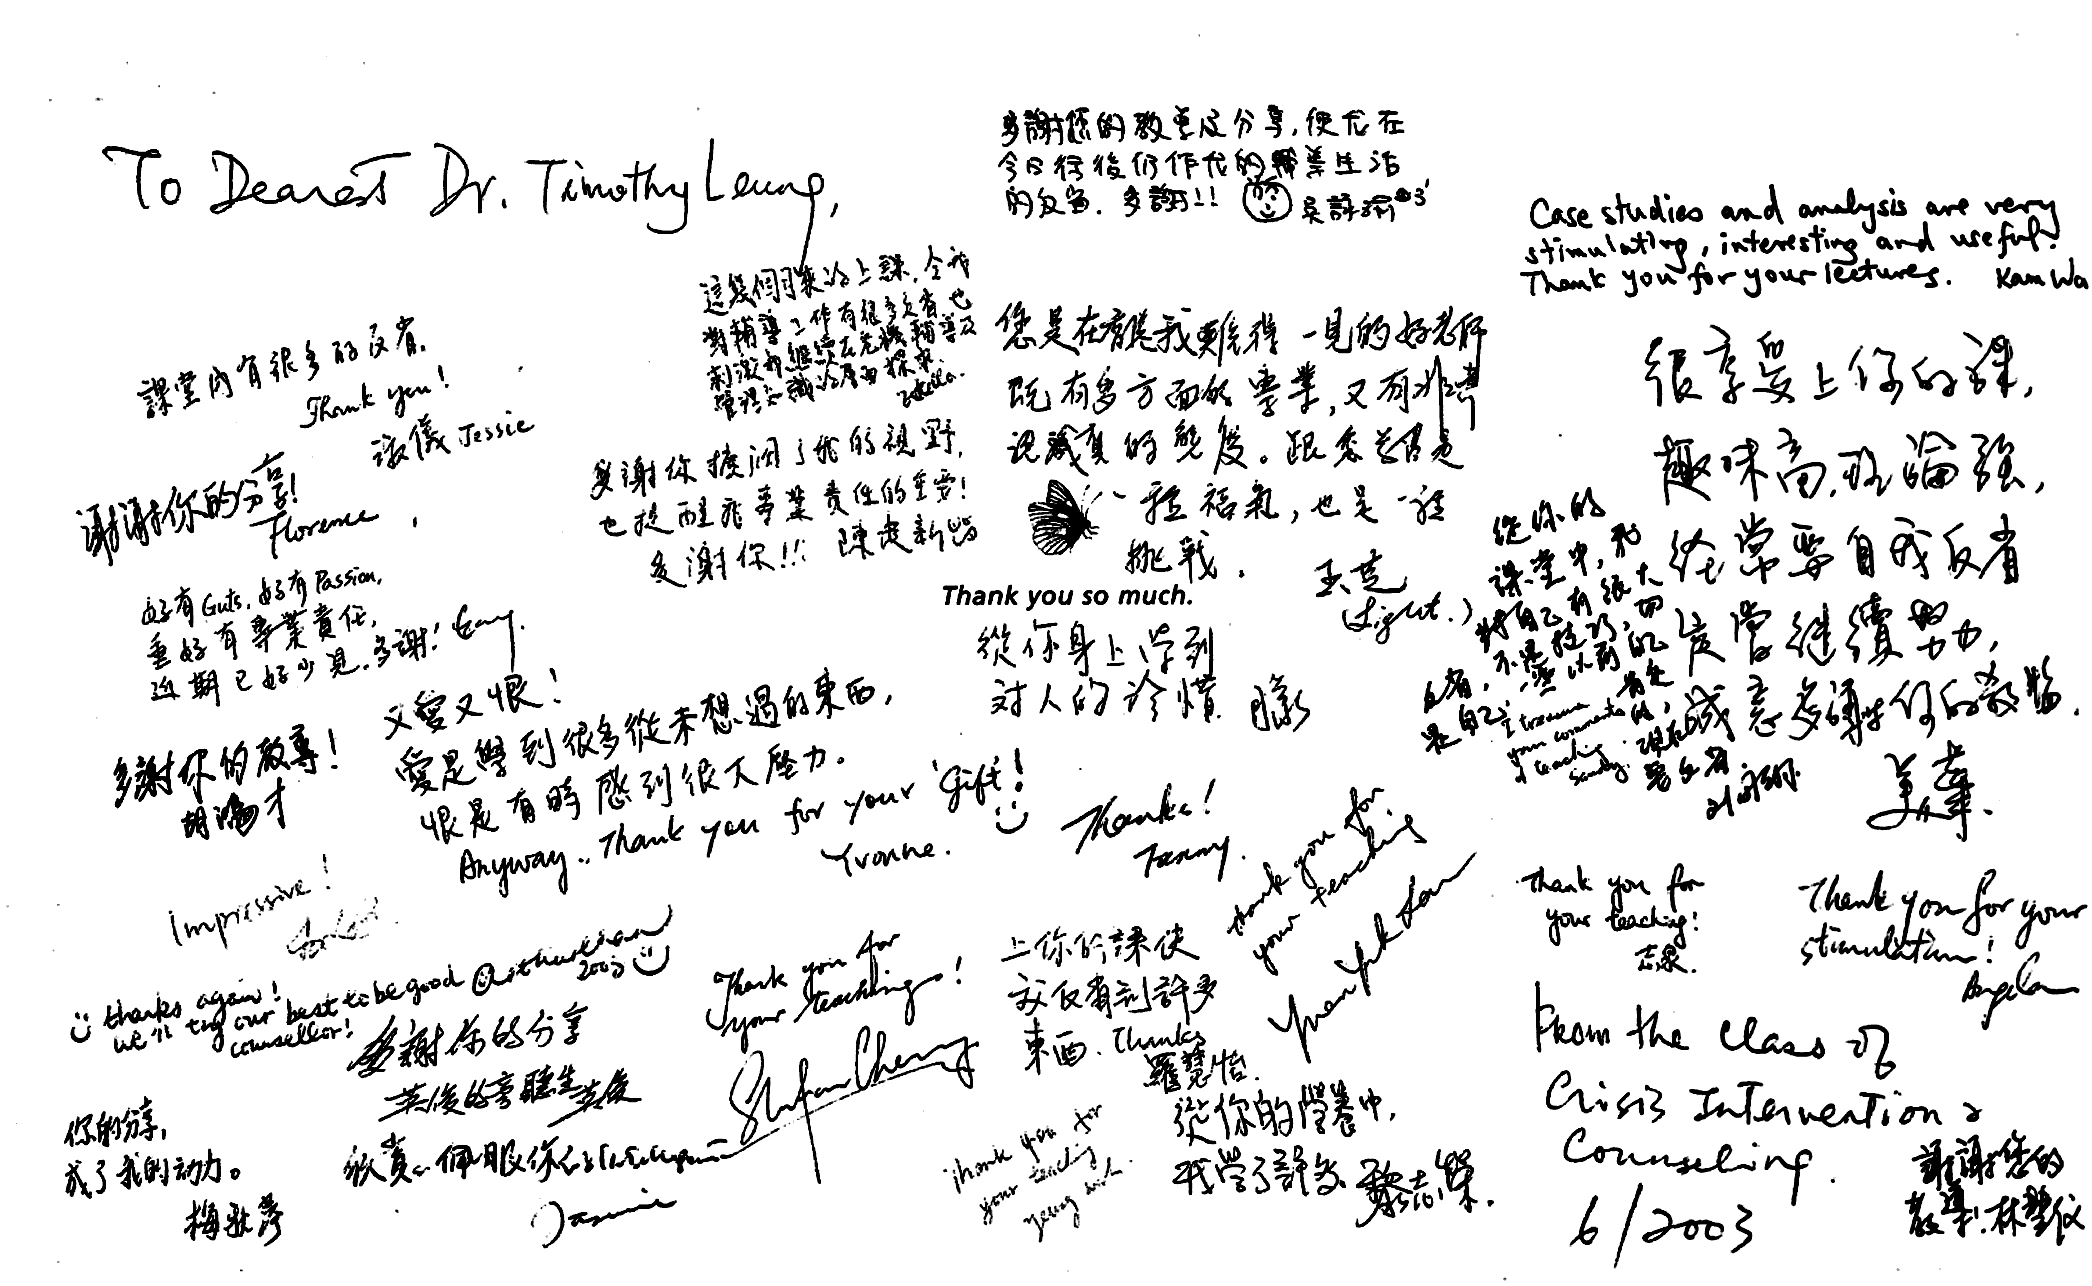 To Dearest Dr. Timothy Leung,
多謝您的教導及分享,使尤在
今日往後仍作代的專業生活
的反省。多謝!!
Case studies and analysis are very
stimulating, interesting and useful.
Thank you for your lectures. Kam Wa
這幾個月來的上課,令我
對輔導工作有很多反省,也
刺激我繼續在危機輔導及
課堂內有很多的反省。
Thank you!
Jessie
您是在者 我難得一見的好老師
既有多方面的專業,又有非常
認識真的態度。跟您學習是
一種福氣,也是一種
挑戰。
(Light.)
很享受上你的課,
趣味高,理論強,
經常要自我反省
後當继續努力,
誠意多謝你的教臨。
美華.
謝謝你的分享!
Florence
多謝你擴濶了我的視野,
也提醒我專業責任的重要!
多謝你!!!
從你的
課堂中,我
對自己有很大
好有Guts, 好有Passion,
重好有專業責任,
近期已好少見。多謝!
Thank you so much.
從你身上學到
對人的珍惜
又愛又恨!
愛是學到很多從未想過的東西,
恨是有時感到很大壓力。
Anyway.. Thank you for your 'Gift'!
Yvonne.
多謝你的教導!
胡鴻才
Thanks!
Tammy.
thank you for
your teaching
Yuen Yuk Lan
Impressive!
thanks again!
we'll try our best to be good
counsellor!
2003
Thank you for
your teachings!
Stefan Cheung
上你的課使
我反省到許多
東西. Thanks
羅慧怡.
Thank you for
your teaching!
Thank you for your
stimulation!
Angela
多謝你的分享
英俊的旁聽生英俊
你的分享,
成了我的动力。
認真。佩服你
Jasmine
Thank you for
your teaching
從你的營養中,
我學了許多
From the class of
Crisis Intervention &
Counseling.
6/2003
謝謝您的
教導!